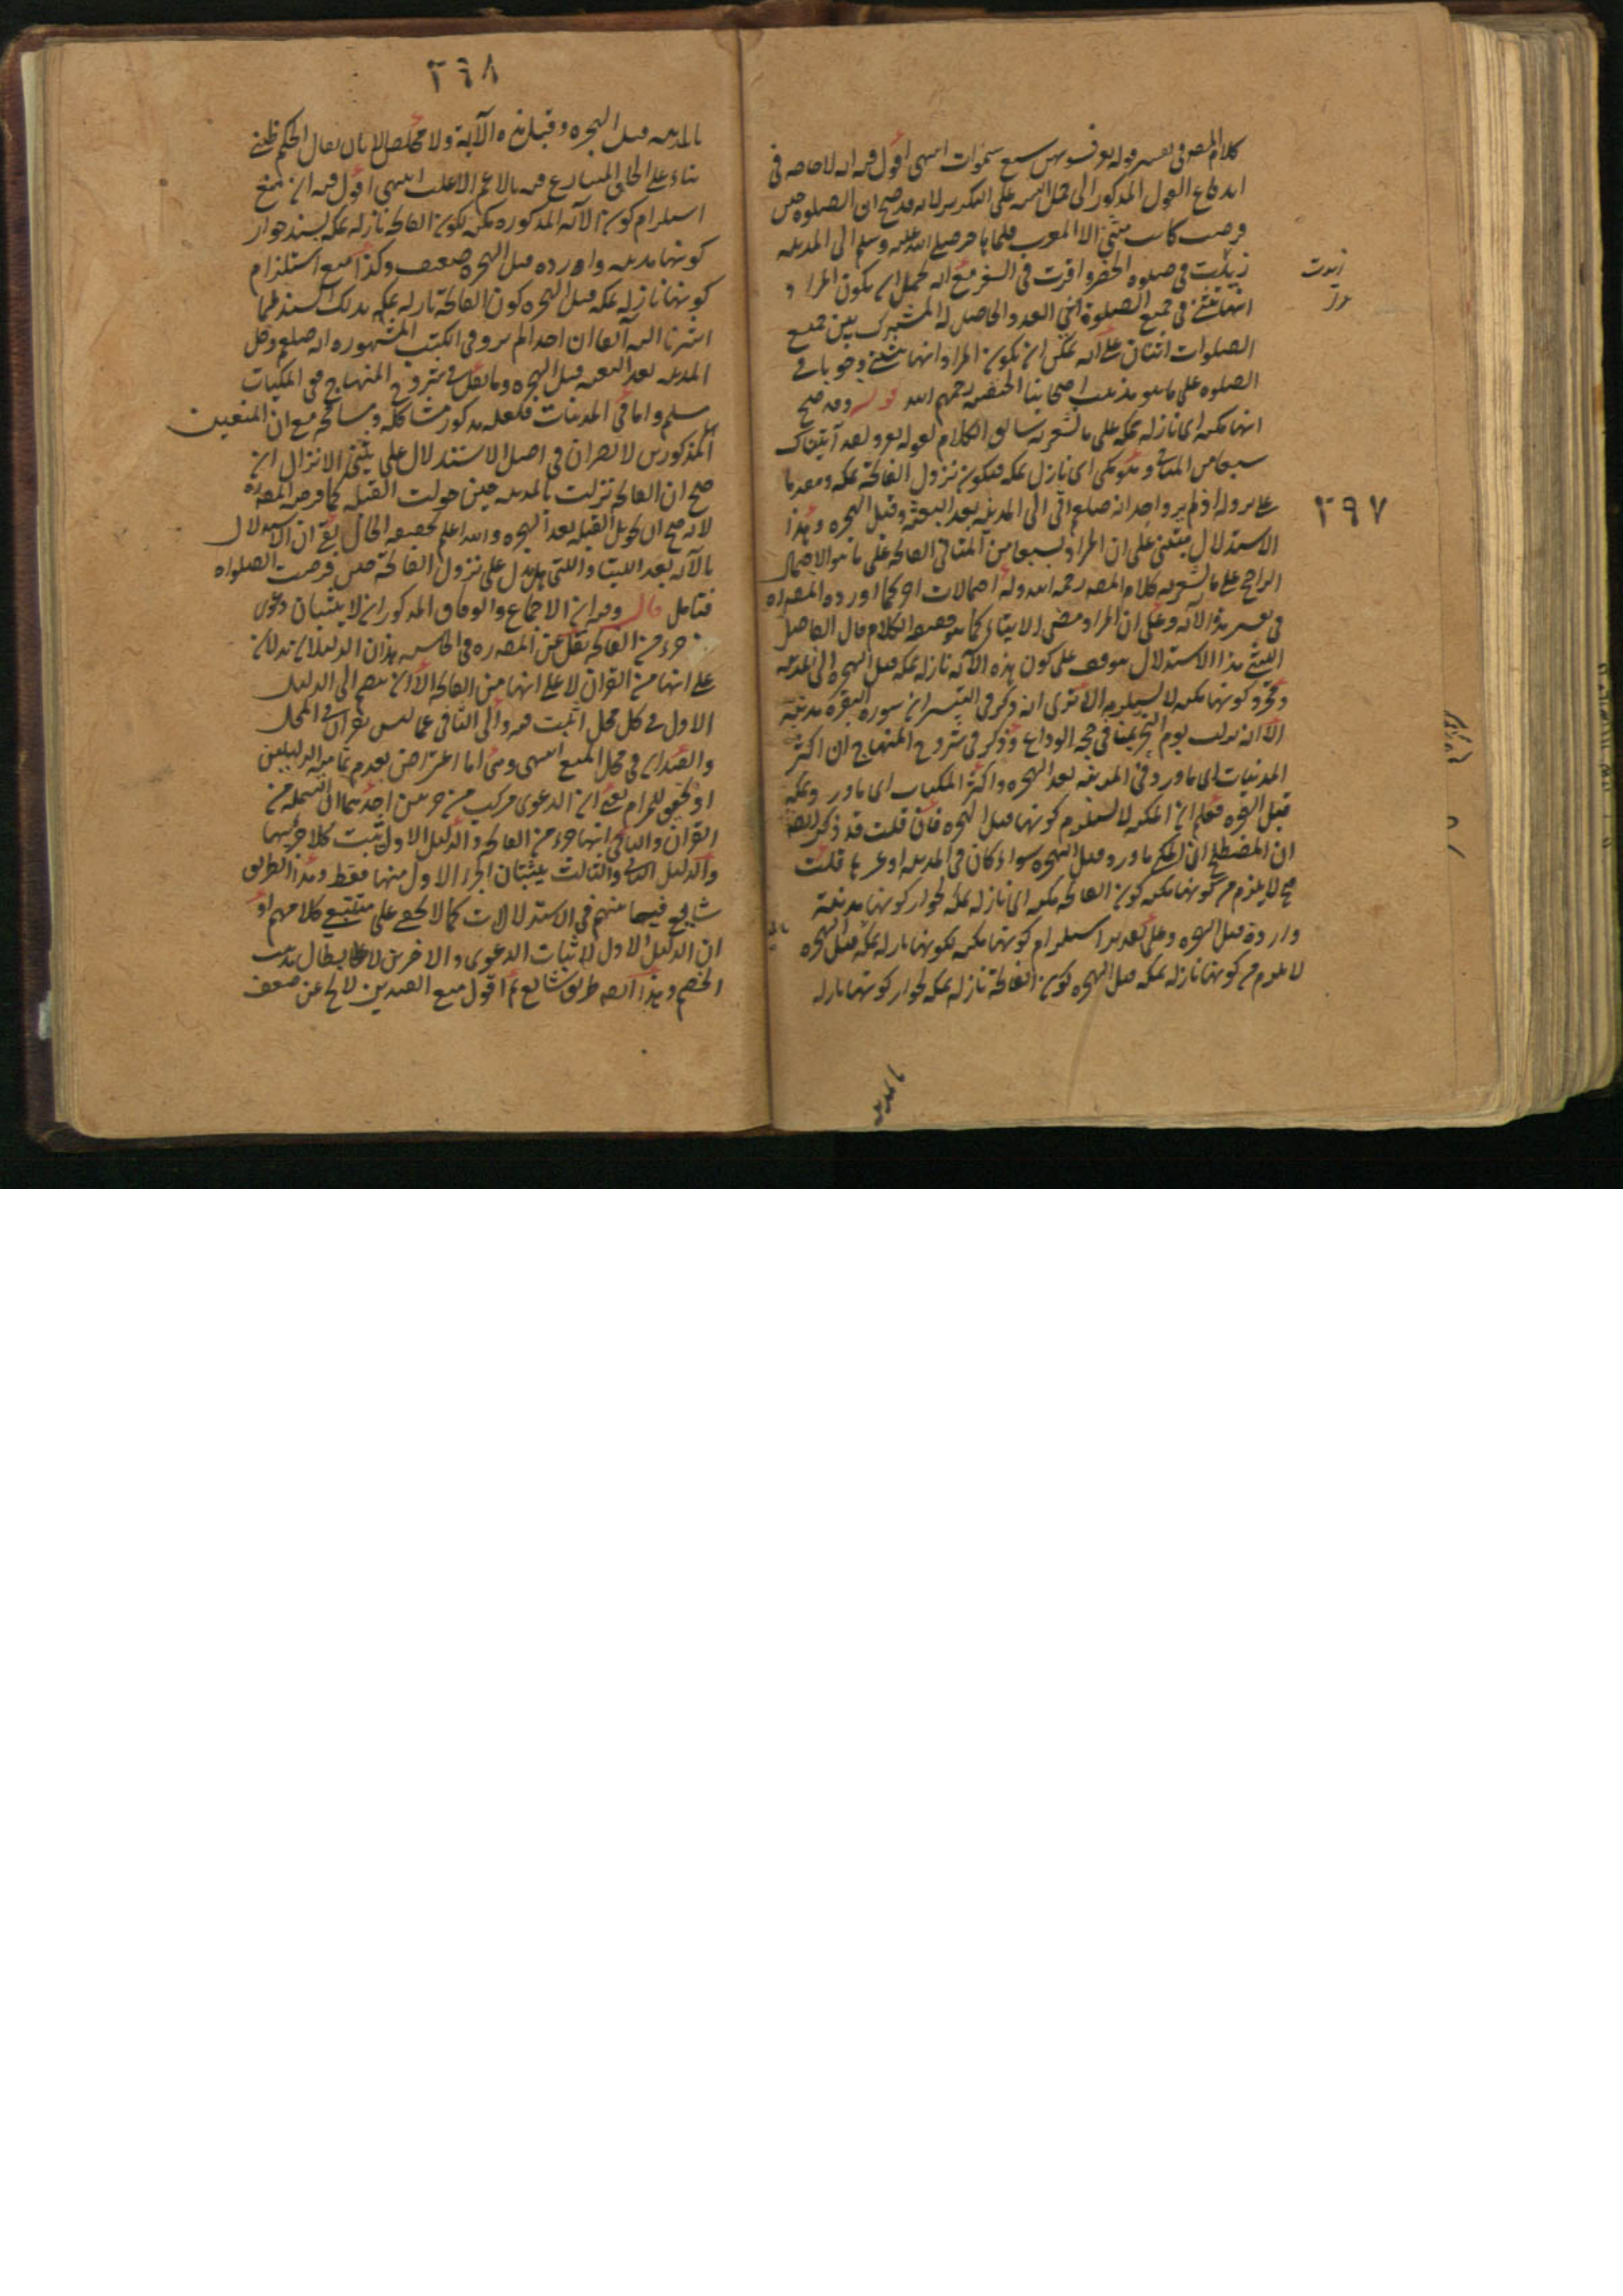 ٢٩٧
كلام المص في تفسير قوله تعالى فسويهن سبع سموات انتهى اقول فيه انه لا حاجة في
اندفاع القول المذكور الى حمل التثنية على التكرير لانه قد صح ان الصلوة حين
فرضت كانت مثنى الا المغرب فلما هاجر صلى الله عليه وسلم الى المدينة
زيدت في صلوة الحضر واقرت في السفر مع انه يحتمل ان يكون المراد
انها تثنى في جميع الصلوة اثنى العدد والحاصل له المشترك بين جميع
الصلوات اثنتان على انه يمكن ان يكون المراد انها تثنى وجوبا في
الصلوة على ما هو مذهب اصحابنا الحنفية رحمهم الله قوله وقد صح
انها مكية اى نازلة بمكة على ما يشعر به سابق الكلام لقوله تعالى ولقد آتيناك
سبعا من المثاني وهو مكى اى نازل بمكة فيكون نزول الفاتحة بمكة ومقدما
على نزوله اذ لم يرو احد انه صلعم اتى الى المدينة بعد البعثة وقبل الهجرة وهذا
الاستدلال مبتنى على ان المراد بسبعا من المثاني الفاتحة على ما هو الاحتمال
الراجح على ما يشعر به كلام المص رحمه الله وله احتمالات اخر كما اورده المص ره
في تفسير هذه الآية وعلى ان المراد مضى الايتاء كما هو حقيقة الكلام قال الفاضل
الليثى هذا الاستدلال موقوف على كون هذه الآية نازلة بمكة قبل الهجرة الى المدينة
ومجرد كونها مكية لا يستلزمه الا ترى انه ذكر في التيسير ان سورة البقرة مدنية
الا آية نزلت يوم النحر بمنا في حجة الوداع وذكر في شروح المنهاج ان اكثر
المدنيات اى ما ورد في المدينة بعد الهجرة واكثر المكيات اى ما ورد بمكة
قبل الهجرة فعلم ان المكية لا يستلزم كونها قبل الهجرة فان قلت قد ذكر ايضا
ان المصطلح ان المكى ما ورد قبل الهجرة سواء كان في المدينة او غيرها قلت
ح لا يلزم من كونها مكية كون الفاتحة مكية اى نازلة بمكة لجواز كونها مدنية
واردة قبل الهجرة وعلى تقدير استلزام كونها مكية لكونها نازلة بمكة قبل الهجرة
لا يلزم من كونها نازلة بمكة قبل الهجرة كون الفاتحة نازلة بمكة لجواز كونها نازلة
بالمدينة
زيدت
٢٦٨
بالمدينة قبل الهجرة وقبل هذه الآية ولا مخلص الا بان يقال الحكم ظنى
بناء على الحاق المتنازع فيه بالاعم الاغلب انتهى اقول فيه ان منع
استلزام كون الآية المذكورة مكية لكون الفاتحة نازلة بمكة بسند جواز
كونها مدنية واردة قبل الهجرة ضعيف وكذا منع استلزام
كونها نازلة بمكة قبل الهجرة كون الفاتحة نازلة بمكة بذلك السند لما
اشرنا اليه آنفا ان احدا لم يرو في الكتب المشهورة انه صلعم دخل
المدينة بعد البعثة قبل الهجرة وما نقل في شروح المنهاج في المكيات
مسلم واما في المدنيات فلعله مذكور مشاكلة ومسامحة مع ان المنعين
المذكورين لا يضران في اصل الاستدلال على مثنى الانزال ان
صح ان الفاتحة نزلت بالمدينة حين حولت القبلة كما مر من المص ره
لانه صح ان تحويل القبلة بعد الهجرة والله اعلم بحقيقة الحال بقى ان الاستدلال
بالآية بعد اللتيا واللتى هل يدل على نزول الفاتحة حين فرضت الصلواه
فتامل قال وفيه ان الاجماع والوفاق المذكوران لا يثبتان دعوى
جزء من الفاتحة نقل عن المص ره في الحاشية هذان الدليلان يدلان
على انها من القرآن لا على انها من الفاتحة الا ان يضم الى الدليل
الاول في كل محل اثبت فيه والى الثاني عما ليس بقرآن في المحل
والقيدان في محل المنع انتهى وهى اما اعتراض بعدم تمامية الدليلين
او تحقيق للمرام يعنى ان الدعوى مركب من جزئين احدهما ان البسملة من
القرآن والثاني انها جزء من الفاتحة والدليل الاول يثبت كلا جزئيهما
والدليل الثاني والثالث يثبتان الجزء الاول منها فقط وهذا الطريق
شايع فيما بينهم في الاستدلالات كما لا يخفى على متتبع كلامهم او
ان الدليل الاول لاثبات الدعوى والاخرين لابطال مذهب
الخصم وهذا ايضا طريق شايع ثم اقول منع القيدين لا يخ عن ضعف